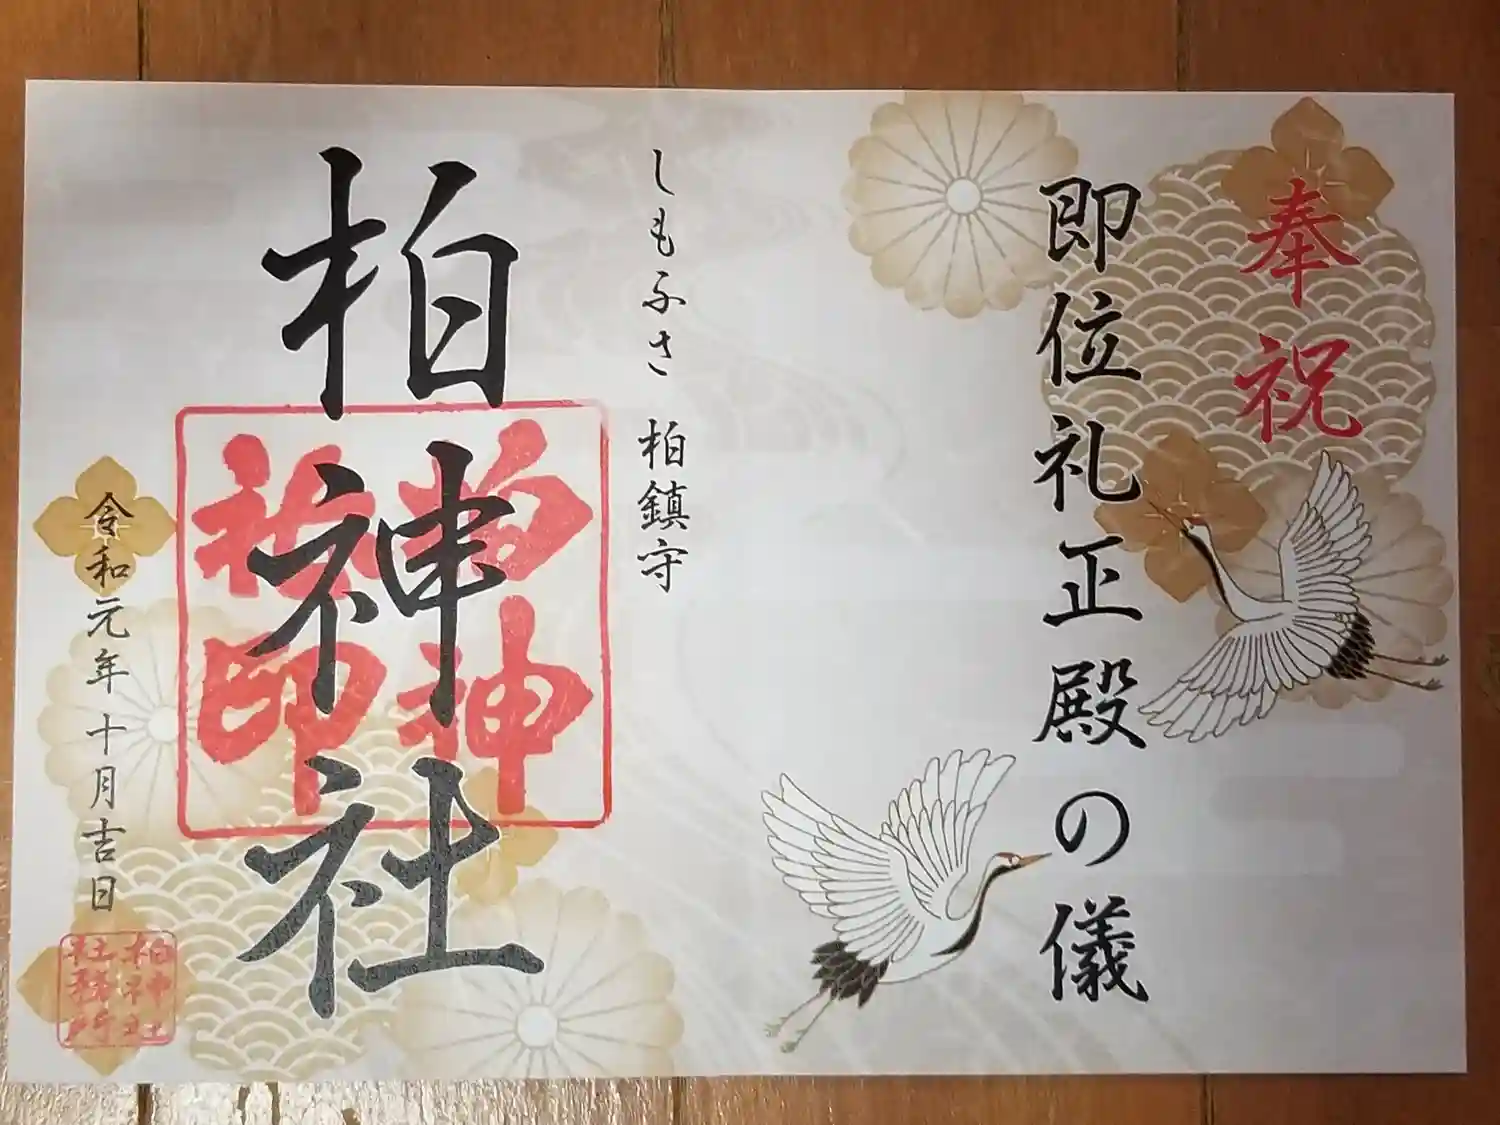 奉祝
即位礼正殿の儀
しもふさ 柏鎮守
柏神社
柏神
社印
令和元年十月吉日
柏神社
社務所